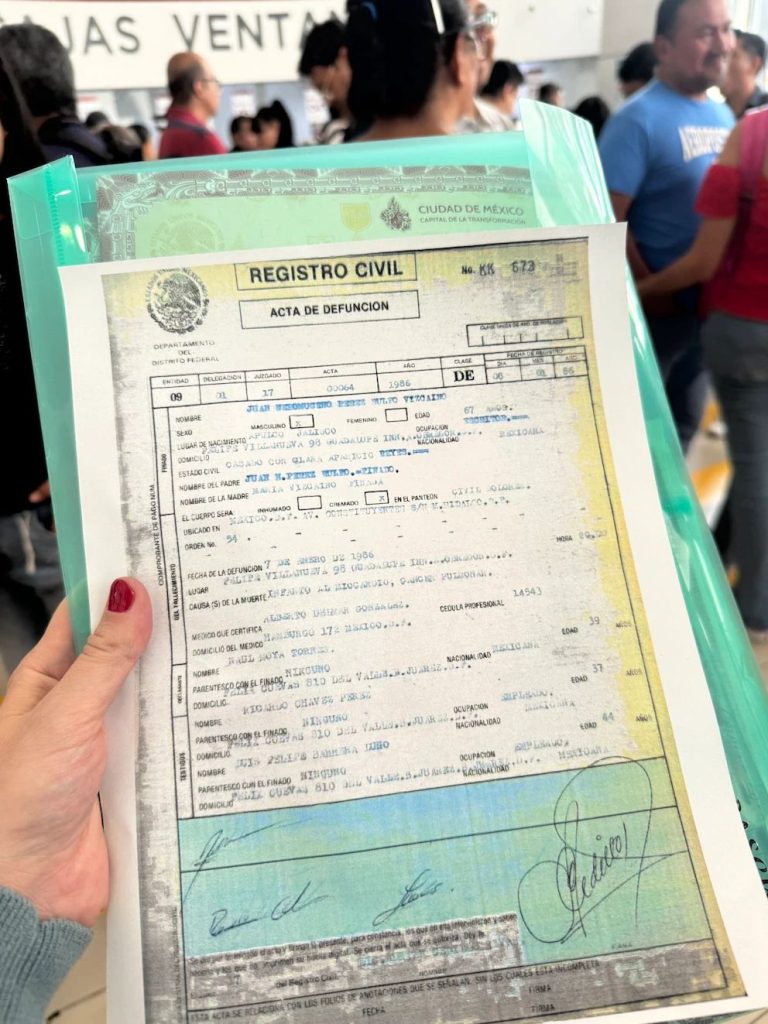 AJAS VENTAN
CIUDAD DE MÉXICO
CAPITAL DE LA TRANSFORMACIÓN
REGISTRO CIVIL
No. KK 673
ACTA DE DEFUNCION
DEPARTAMENTO
DEL
DISTRITO FEDERAL
ENTIDAD DELEGACION JUZGADO ACTA AÑO CLASE FECHA DE REGISTRO
DIA MES AÑO
09 01 17 00064 1986 DE 08 01 86
FINADO
NOMBRE JUAN NEPOMUCENO PEREZ RULFO VIZCAINO
SEXO MASCULINO X FEMENINO EDAD 67 AÑOS.
LUGAR DE NACIMIENTO APULCO JALISCO OCUPACION ESCRITOR.
DOMICILIO FELIPE VILLANUEVA 98 GUADALUPE INN.A.OBREGON.D.F. NACIONALIDAD MEXICANA
ESTADO CIVIL CASADO CON CLARA APARICIO REYES.
NOMBRE DEL PADRE JUAN N.PEREZ RULFO.-FINADO.
NOMBRE DE LA MADRE MARIA VIZCAINO FINADA
EL CUERPO SERA: INHUMADO CREMADO X EN EL PANTEON CIVIL DOLORES.
UBICADO EN MEXICO.D.F. AV. CONSTITUYENTES S/N M.HIDALGO.D.F.
ORDEN No. 94
COMPROBANTE DE PAGO NUM.
DEL FALLECIMIENTO
FECHA DE LA DEFUNCION 7 DE ENERO DE 1986 HORA
LUGAR FELIPE VILLANUEVA 98 GUADALUPE INN.A.OBREGON.D.F.
CAUSA (S) DE LA MUERTE INFARTO AL MIOCARDIO, CANCER PULMONAR.
MEDICO QUE CERTIFICA ALBERTO GONZALEZ. CEDULA PROFESIONAL 14543
DOMICILIO DEL MEDICO HAMBURGO 172 MEXICO.D.F.
DECLARANTE
NOMBRE RAUL MOYA TORRES. EDAD 39 AÑOS
PARENTESCO CON EL FINADO NINGUNO NACIONALIDAD MEXICANA
DOMICILIO FELIX CUEVAS 810 DEL VALLE.B.JUAREZ.D.F.
TESTIGOS
NOMBRE RICARDO CHAVEZ PEREZ EDAD 37 AÑOS
PARENTESCO CON EL FINADO NINGUNO OCUPACION EMPLEADO.
DOMICILIO FELIX CUEVAS 810 DEL VALLE.B.JUAREZ.D.F. NACIONALIDAD MEXICANA
NOMBRE LUIS FELIPE BARRERA EDAD 44 AÑOS
PARENTESCO CON EL FINADO NINGUNO OCUPACION EMPLEADO,
DOMICILIO FELIX CUEVAS 810 DEL VALLE.B.JUAREZ.D.F. NACIONALIDAD MEXICANA
del Registro Civil. NOMBRE FIRMA
ESTA ACTA SE RELACIONA CON LOS FOLIOS DE ANOTACIONES QUE SE SEÑALAN, SIN LOS CUALES ESTA INCOMPLETA
FECHA FIRMA
FIRMA